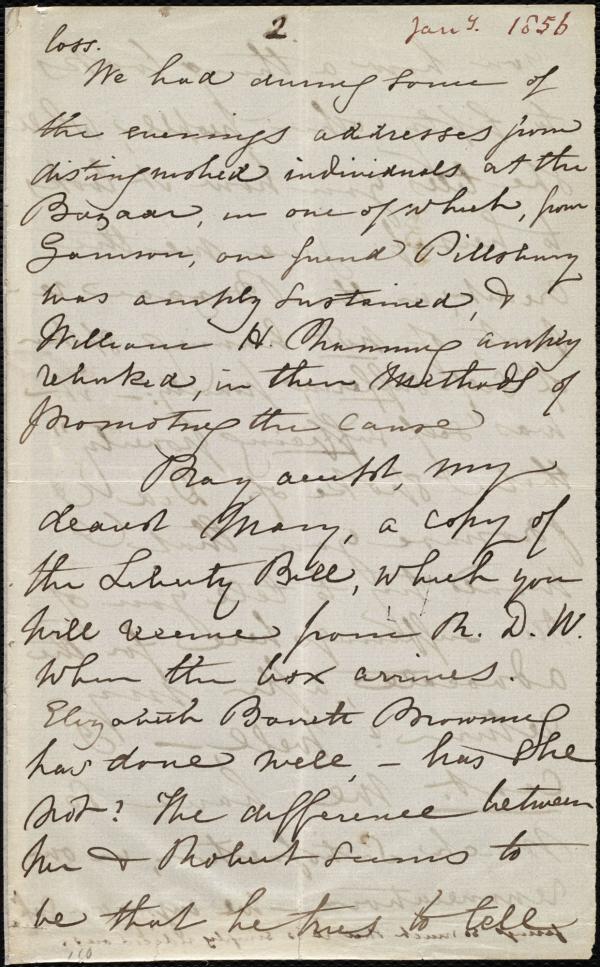 2
Jany. 1856
loss.
We had during some of
the evenings addresses from
distinguished individuals at the
Bazaar, in one of which, from
Garrison, our friend Pillsbury
was amply sustained, &
William H. Channing amply
rebuked, in their methods of
promoting the cause
Pray accept, my
dearest Mary, a copy of
the Liberty Bell, which you
will receive from R. D. W.
when the box arrives.
Elizabeth Barrett Browning
has done well, - has she
not? The difference between
her & Robert seems to
be that he tries to tell